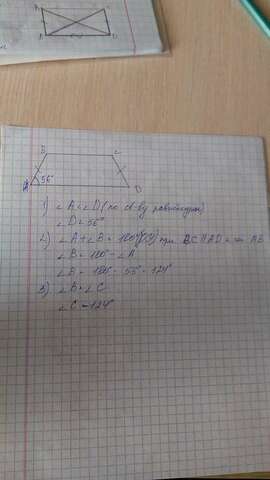 B C
A 56° D
1) ∠A = ∠D (по св-ву равнобедр)
∠D = 56°
2) ∠A + ∠B = 180° при BC ∥ AD и AB
∠B = 180° - ∠A
∠B = 180 - 56 = 124°
3) ∠B = ∠C
∠C = 124°